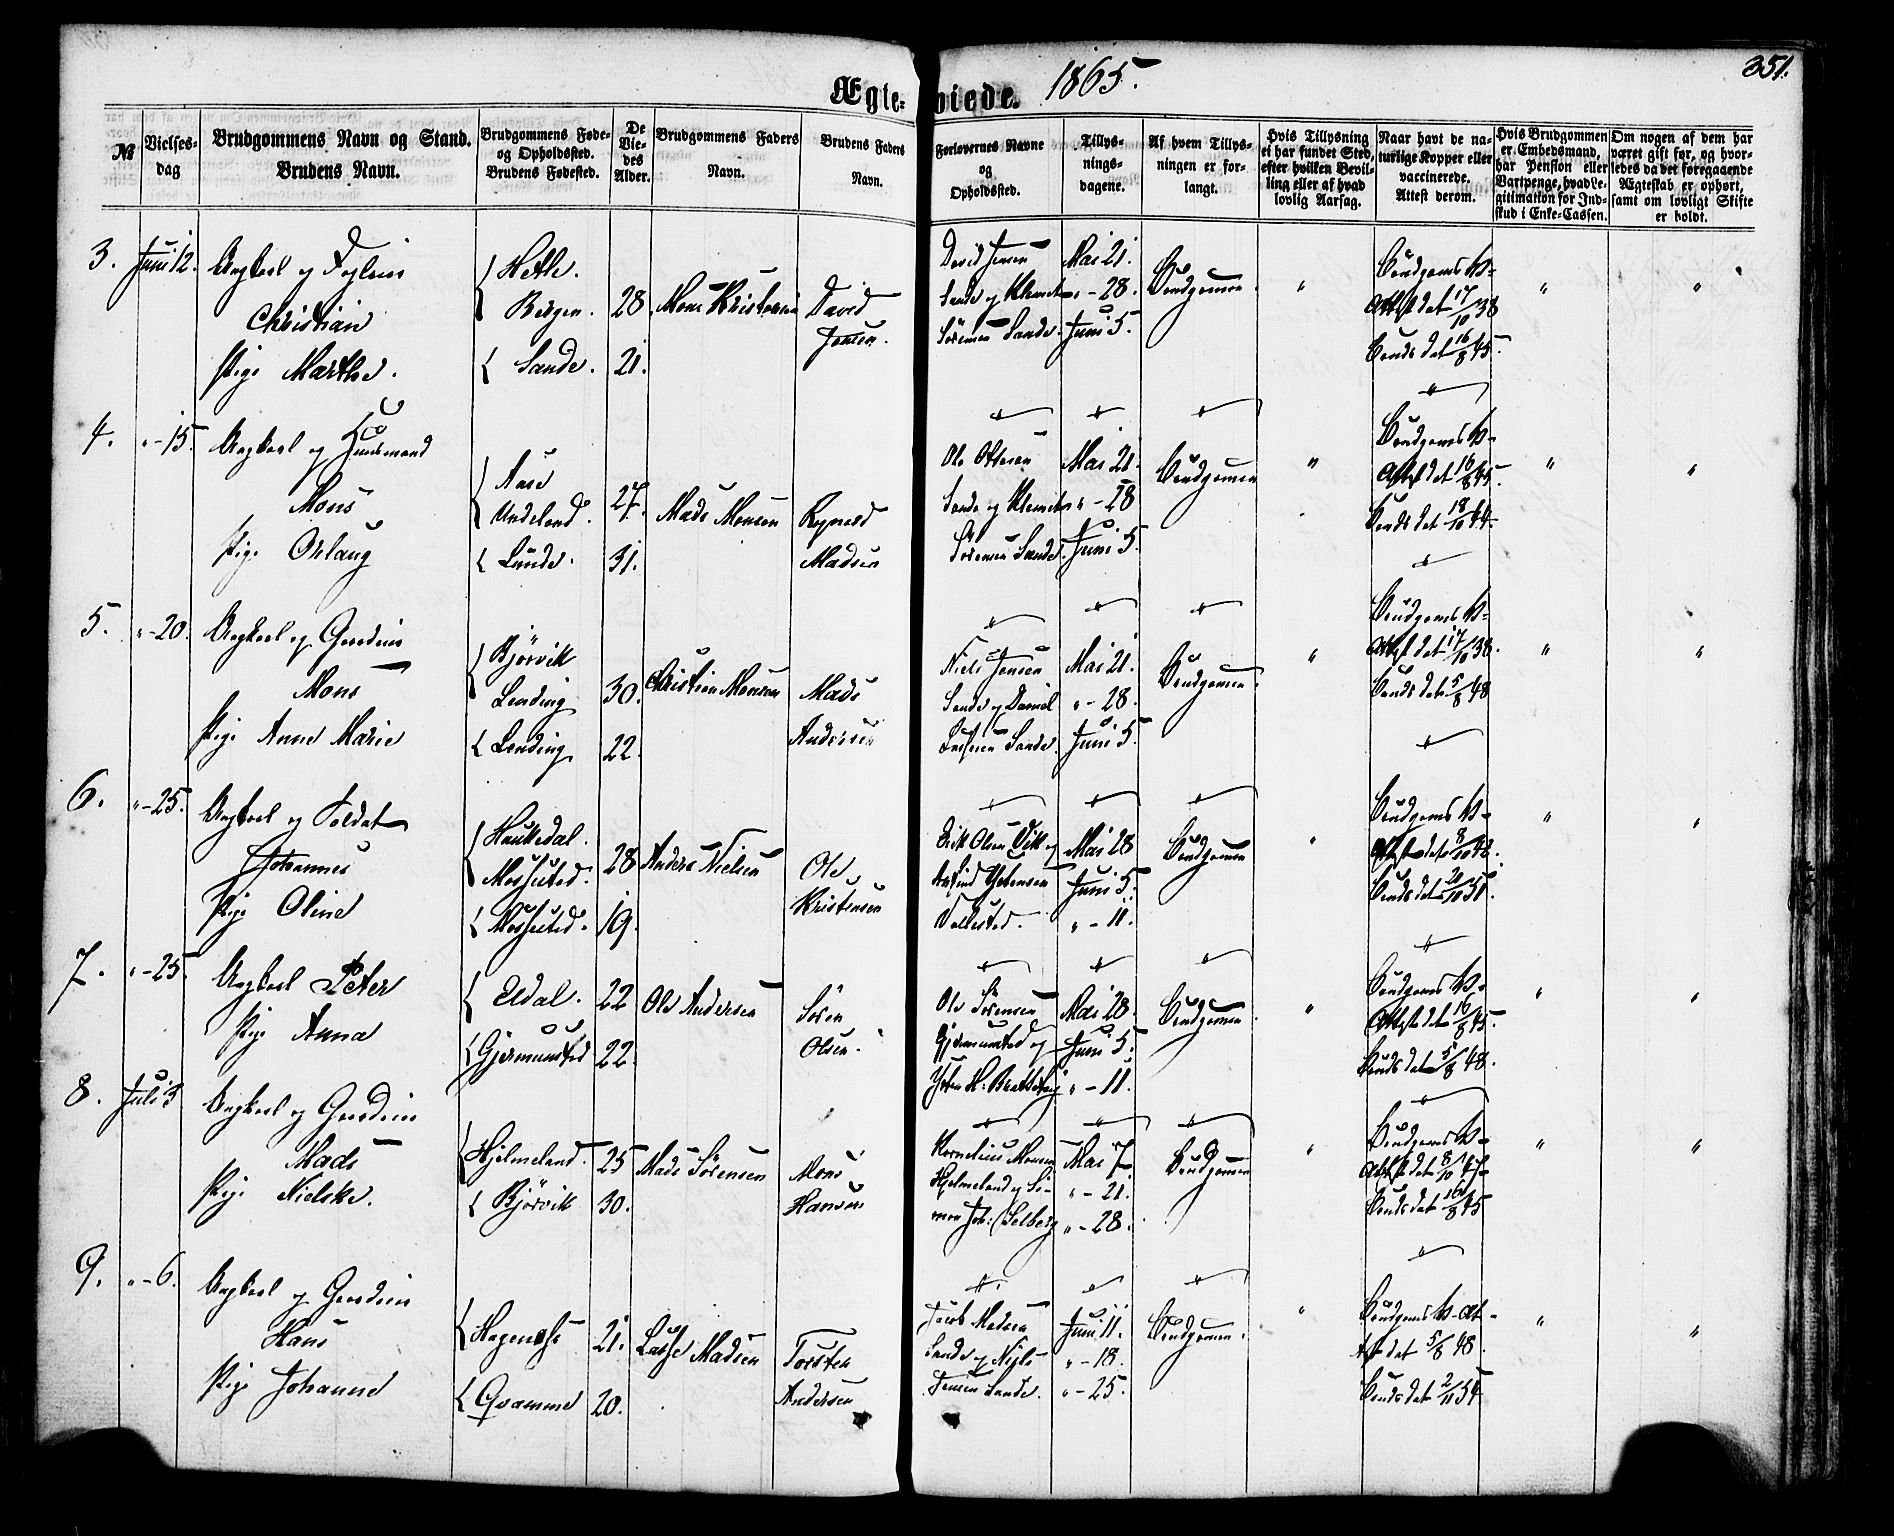 Ægte-viede. 1865. 351.
№
Vielses-dag
Brudgommens Navn og Stand. Brudens Navn.
Brudgommens Føde- og Opholdssted. Brudens Fødested.
De Vie-des Alder.
Brudgommens Faders Navn.
Brudens Faders Navn.
Forlovernes Navne og Opholdssted.
Tillys-nings-dagene.
Af hvem Tillys-ningen er for-langt.
Hvis Tillysning ei har fundet Sted, efter hvilken Bevil-ling eller af hvad lovlig Aarsag.
Naar havt de na-turlige Kopper eller vaccinerede. Attest derom.
Hvis Brudgommen er Embedsmand, har Pension eller Vartpenge, hvad Le-gitimation for Ind-skud i Enke-Cassen.
Om nogen af dem har været gift før, og hvor-ledes da det foregaaende Ægteskab er ophørt, samt om lovligt Skifte er holdt.
3. Juni 12. Ungkarl og
Christian
Pige Marthe.
Hetle.
Bergen. 28
Sande. 21.
Mons Kristensen
David
Jensen.
David Jensen
Sande og Klement
Sørensen Sande.
Mai 21.
" - 28.
Juni 5.
Brudgommen.
" Brudgoms V-
Attest dat 17/10 38
Bruds dat 16/8 45.
" "
4. " - 15. Ungkarl og Huusmand
Mons
Pige Orlaug
Aase
Undeland. 27.
Lunde. 31.
Mads Monsen
Rognald
Madsen
Ole Ottesen
Sande og Klement
Sørensen Sande.
Mai 21.
" - 28
Juni 5.
Brudgommen
" Brudgoms V-
Attest dat 16/8 45.
Bruds dat 18/10 44
" "
5. " - 20. Ungkarl og Gaardmand
Mons
Pige Anne Marie
Bjørvik
Lending 30.
Lending 22.
Christian Monsen
Mads
Andersen
Niels Jensen
Sande og Daniel
Sande.
Mai 21.
" - 28.
Juni 5.
Brudgommen.
" Brudgoms V-
Attest dat 17/10 38.
Bruds dat 5/8 48
" "
6. " - 25. Ungkarl og Soldat
Johannes
Pige Oline
Haukedal.
28
19.
Anders Nielsen
Ole
Kristensen
Erik Olsen Vik og
Mai 28
Juni 5.
" - 11.
Brudgommen
" Brudgoms V-
Attest dat 8/10 42.
Bruds dat 51.
" "
7. " - 25. Ungkarl Peter
Pige Anna
Eldal. 22
Gjermunsted 22.
Ole Andersen
Søren
Olsen.
Ole Sørensen
Gjermunsted og
Mai 28
Juni 5.
" - 11.
Brudgommen.
" Brudgoms V-
Attest dat 16/8 45.
Bruds dat 5/8 48.
" "
8. Juli 3 Ungkarl og Gaardmand
Mads
Pige Nielske.
Hjelmeland. 25
Bjørvik 30.
Mads Sørensen
Mons
Hansen
Kornelius Monsen
Hjelmeland og Si-
mon Joh: Selberg
Mai 7
" - 21.
" - 28.
Brudgommen
" Brudgoms V-
Attest dat 8/10 47
Bruds dat 16/8 45
" "
9. " - 6. Ungkarl og Gaardmand
Hans
Pige Johanne
21.
Qvamme 20.
Lasse Madsen
Torsten
Andersen
Jacob Madsen
Sande og Niels
Jensen Sande.
Juni 11.
" - 18.
" - 25.
Brudgommen.
" Brudgoms V-at-
test dat 5/8 48.
Bruds dat 2/11 54
" "